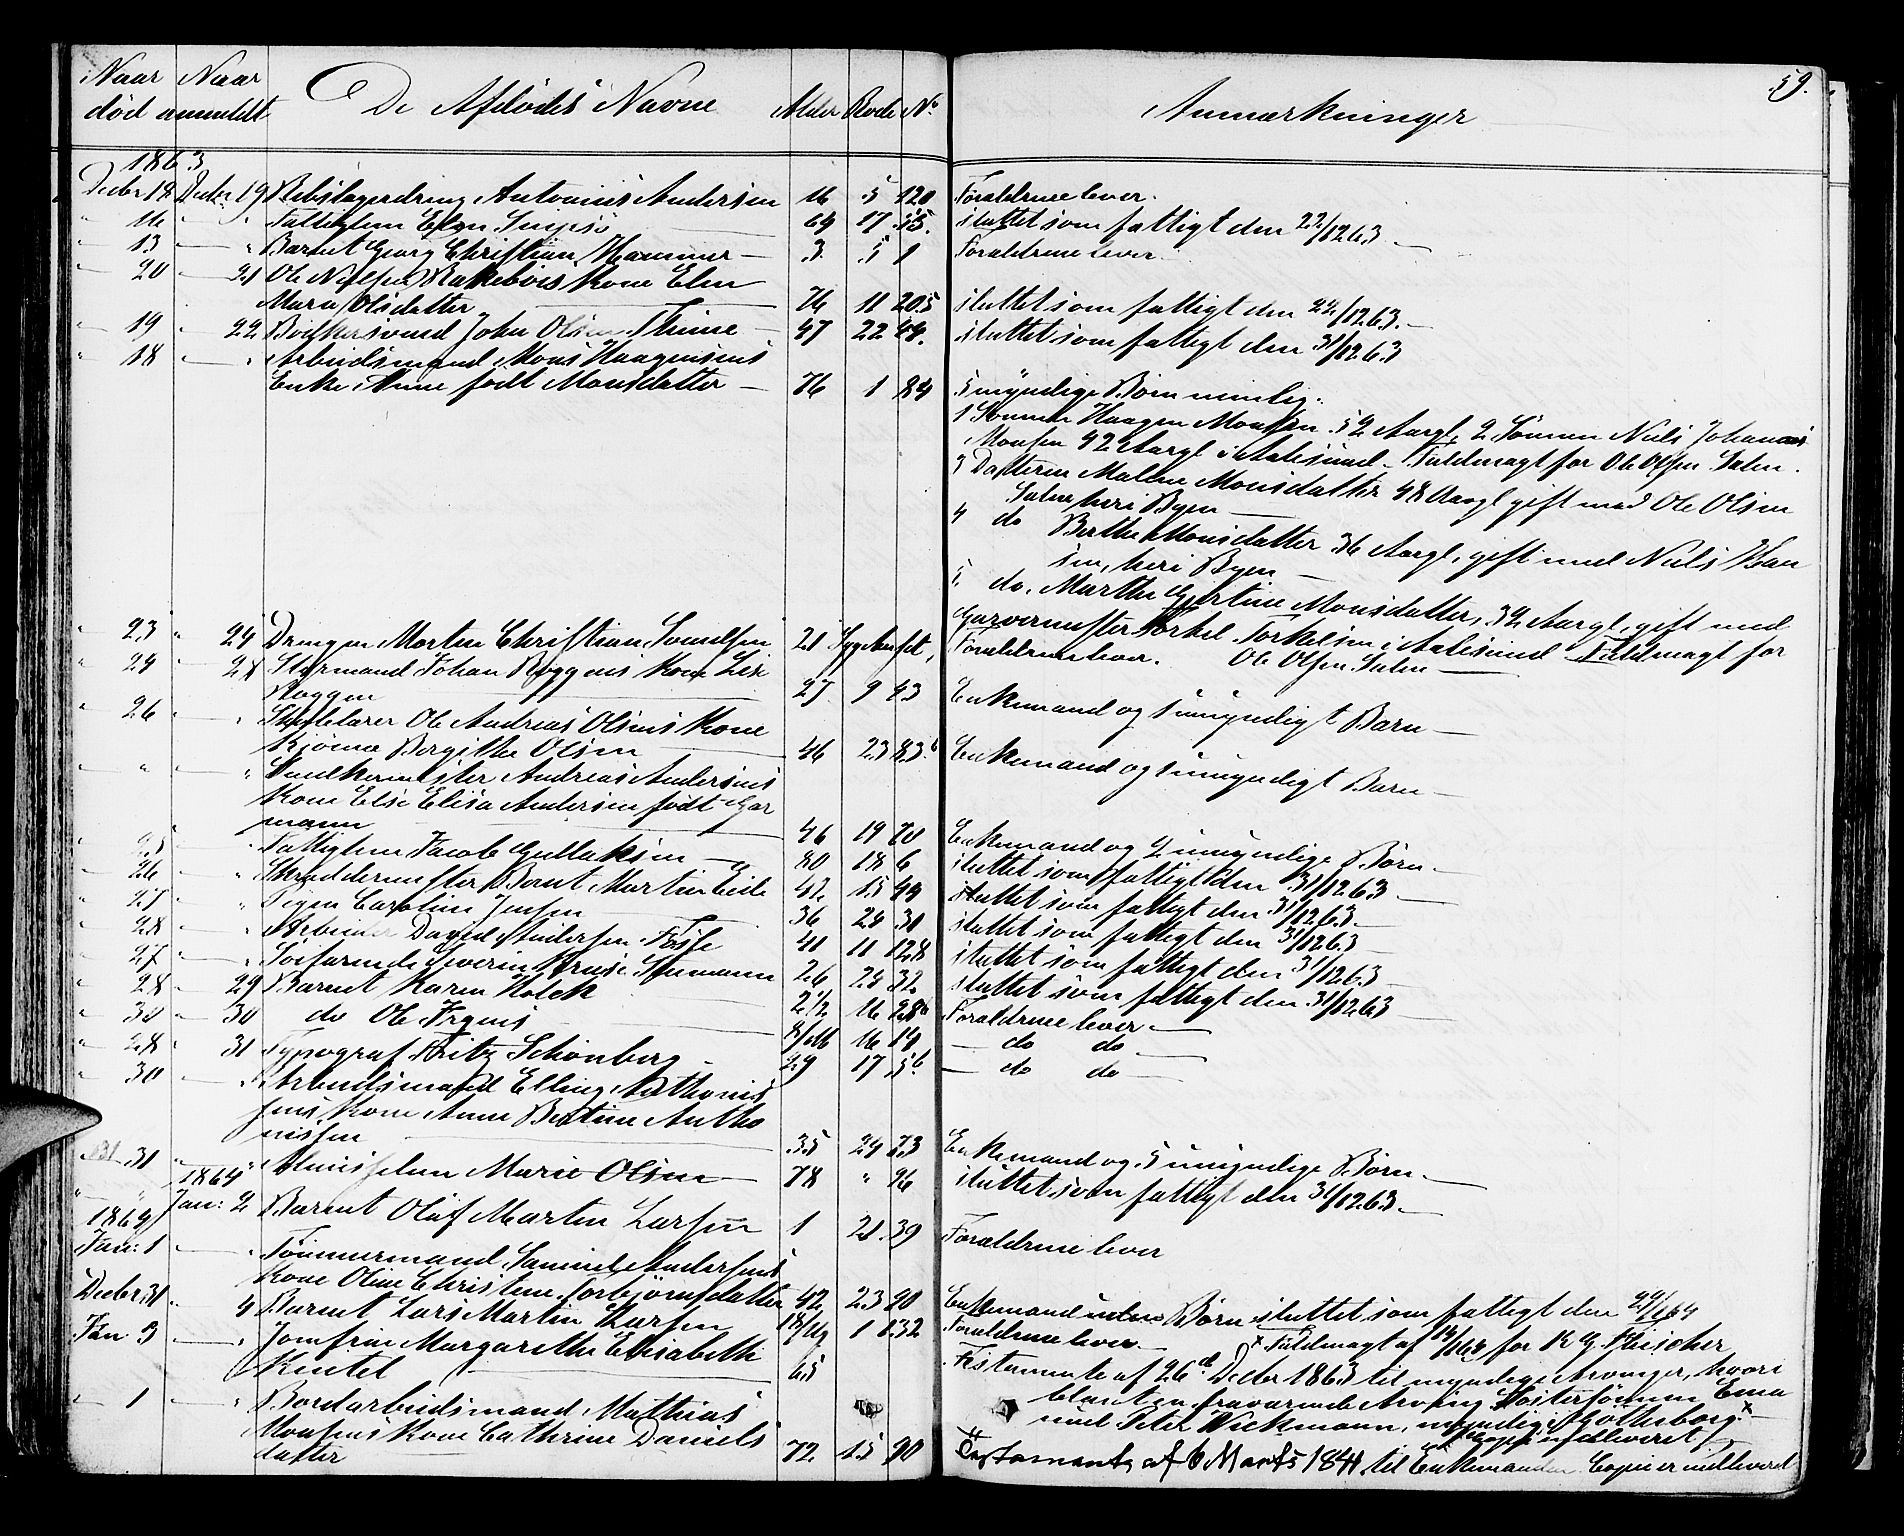 59.
Naar Naar De Afdødes Navne Alder Rode No Anmærkninger
død anmeldt
1863
Decbr 18 Decbr 19 Rebslagerdreng Antonius Andersen 16 5 120 Forældrene lever.
" 16 — " Fattiglem Elen 69 17 55. sluttet som fattigt den 22/12 63 —
" 13 — " Barnet Georg Christian Hammer — 3 5 1 Forældrene lever.
— 20 — 21 Ole Nilsen Kone Elen
Marie Olsdatter 76 11 205 sluttet som fattigt den 22/12 63. —
" 19 " 22 Bødkersvend John Olsen Thime — 47 22 49. sluttet som fattigt den 31/12 63
" 18 — " Arbeidsmand Mons Haagensens
Enke Anne født Monsdatter — 76 1 84 5 myndige Børn nemlig:
1 Sønnen Haagen Monsen 52 Aargl, 2 Sønnen Niels Johannes
Monsen 42 Aargl i Aalesund – Fuldmagt for Ole Olsen Salen.
3 Datteren Malene Monsdatter 48 Aargl gift med Ole Olsen
Salen, heri Byen —
4 do Berthe Monsdatter 36 Aargl, gift med Niels Han
sen, heri Byen —
5. do. Marthe Gjertine Monsdatter, 32 Aargl, gift med
Garvermester Torkel Torkelsen i Aalesund – Fuldmagt for
Ole Olsen Salen —
" 23 " 24 Drengen Morten Christian 21 Sygeanst, Forældrene lever.
— 24 — 28 Styrmand Johan Roggens Kone Lise
Roggen 27 9 43 Enkemand og 1 umyndigt Barn —
" 26 — " Ole Andreas Olsens Kone
Bergithe Olsen 46 23 83b Enkemand og 1 umyndigt Barn —
— " — " Snedkermester Andreas Andersens
Kone Else Elisa Andersen født Gar
mann 46 19 70 Enkemand og 2 umyndige Børn —
" 25 " Fattiglem Jacob Gullaksen — 80 18 6 sluttet som fattigt den 31/12 63 —
" 26 — " Skræddermester Bernt Martin 42 15 44 sluttet som fattigt den 31/12 63 —
— 27 — " Pigen Caroline Jensen 36 24 31 sluttet som fattigt den 31/12 63
— 28 — " Arbeider David Andersen 41 11 128 sluttet som fattigt den 31/12 63 —
— 27 — " Søfarende Severin 26 24 32. sluttet som fattigt den 31/12 63 —
" 28 — 29 Barnet Karen Holck 2 1/2 16 28b Forældrene lever —
" 30 — 30 do Ole 8/M 16 19 — do do —
" 28 — 31 Typograf Fritz Schønberg 29 17 5b — do do —
" 30 — " Arbeidsmand Elling Anthonis
sens Kone Anne Bertine Antho
nissen 35 24 73 Enkemand og 5 umyndige Børn —
31 " " Marie Olsen — 78 " 96 sluttet som fattigt den 31/12 63 —
1864
" " Jan: 2 Barnet Olaf Martin Larsen 1 21 39 Forældrene lever
1864
Jan: 1 — " Tømmermand Samuel Andersens
Kone Oline Christine Torbjørnsdatter 42 23 90 Enkemand uden Børn sluttet som fattigt den 24/1 64
Decbr 31 " 4 Barnet Lars Martin Karsen 18/Ug 1 132 Forældrene lever.— x Fuldmagt af 14/1 64 for R G. Fleischer
Jan: 3 — " Jomfrue Margarethe Elisabeth
65 Testamente af 26de Decbr 1863 til myndige Arvinger, hvori
blandt en fraværende Arving Søstersønnen Ema
nuel Peter Wickmann, myndig i Gøtheborg. x
Copi indleveret
— 1 — " Bordarbeidsmand Mathias
Monsens Kone Cathrine Daniels
datter 72. 15 90 Testamente af 6 Marts 1841 til Enkemanden. Copi er indleveret